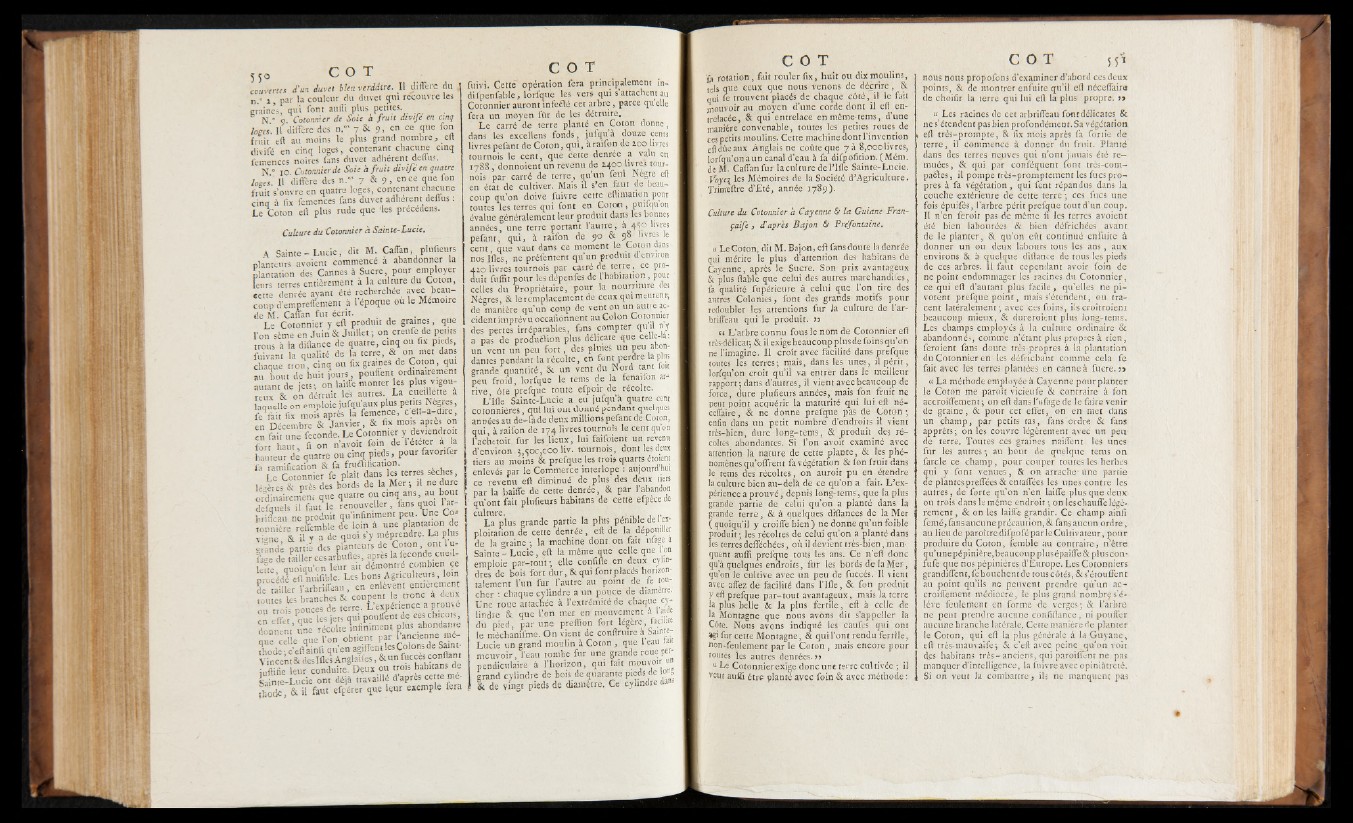 550 COT COT
couvertes d'un duvet bleu verdâtre. Il diffère du
n.° 1, par la couleur du duvet qui recouvre les
graines, qui font auffi plus petites.
N.° 9. Cotonnier de Soie à fruit divifé en cinq
loges. Il diffère des n.os 7 & 9, en ce que fon
fruit eft au moins le plus grand nombre, eft
divifé en cinq loges, contenant chacune cinq
femences noires fans duvet adhérent deffus.
N.° 10. Cotonnier de Soie à fruit divifé en quatre
loges. Il diffère des n.os 7 & 9, en ce que fon
fruit s'ouvre en quatre loges, contenant chacune
cinq à fix femences fans duvet adhérent deffus :
Le Coton eft plus rude que les précédens.
Culture du Cotonnier à Sainte-Lucie.
A Sainte-Lucie, dit M. Caffan, plufieurs
planteurs avoient commencé à abandonner la
plantation des Cannes à Sucre, pour employer
leurs terres entièrement à la culture du Coton,
cette denrée ayant été recherchée avec beau-
coup d'empreffement à l'époque où le Mémoire
de M. Caffan fut écrit.
Le Cotonnier y eft produit de graines, que
l'on sème en Juin & Juillet ; on creufe de petits
trous à la diftance de quatre, cinq ou fix pieds,
fuivant la qualité de la terre, & on met dans
chaque trou, cinq ou fix graines de Coton, qui
au bout de huit jours, pouffent ordinairement
autant de jets ; on laiffe monter les plus vigou-
reux & on détruit les autres. La cueillette à
laquelle on emploie jufqu'aux plus petits Nègres,
fe fait fix mois après la femence, c'eft-à-dire,
en Décembre & Janvier, & fix mois après on
en fait une feconde. Le Cotonnier y deviendroit
fort haut, fi on n'avoit foin de l'étêter à la
hauteur de quatre ou cinq pieds, pour favorifer
fa ramification & fa fructification.
Le Cotonnier fe plaît dans les terres sèches,
légères & près des bords de la Mer ; il ne dure
ordinairement que quatre ou cinq ans, au bout
defquels il faut le renouveller, fans quoi l'ar-
briffeau ne produit qu'infiniment peu. Une Co-
tonnière reffemble de loin à une plantation de
vigne, & il y a de quoi s'y méprendre. La plus
grande partie des planteurs de Coton, ont l'u-
fage de tailler ces arbuftes, après la feconde cueil-
lette, quoiqu'on leur ait démontré combien ce
procédé eft nuifible. Les bons Agriculteurs, loin
de tailler l'arbriffeau, en enlèvent entièrement
toutes les branches & coupent le tronc à deux
ou trois pouces de terre. L'expérience a prouvé
en effet, que les jets qui pouffent de ces chicots,
donnent une récolte infiniment plus abondante
que celle que l'on obtient par l'ancienne mé-
thode, c'eft ainfi qu'en agiffent les Colons de Saint-
Vincent & des Ifles Anglaifes, & un fuccès conftant
juftifie leur conduite. Deux ou trois habitans de
Sainte-Lucie ont déjà travaillé d'après cette mé-
thode, & il faut efpérer que leur exemple fera
fuivi. Cette opération fera principalement in-
difpenfable, lorfque les vers qui s'attachent au
Cotonnier auront infecté cet arbre, parce qu'elle
fera un moyen fûr de les détruire.
Le carré de terre planté en Coton donne,
dans les excellens fonds, jufqu'à douze cents
livres pefant de Coton, qui, à raifon de 200 livres
tournois le cent, que cette denrée a valu en
1788, donnoient un revenu de 2400 livres tour-
nois par carré de terre, qu'un feul Nègre eft
en état de cultiver. Mais il s'en faut de beau-
coup qu'on doive fuivre cette eftimation pour
toutes les terres qui font en Coton, puifqu'on
évalue généralement leur produit dans les bonnes
années, une terre portant l'autre, à 450 livres
pefant, qui, à raifon de 90 & 98 livres le
cent, que vaut dans ce moment le Coton dans
nos Ifles, ne préfentent qu'un produit d'environ
420 livres tournois par carré de terre, ce pro-
duit fuffit pour les dépenfes de l'habitation, pour
celles du Propriétaire, pour la nourriture des
Nègres, & le remplacement de ceux qui meurent,
de manière qu'un coup de vent ou un autre ac-
cident imprévu occafionnent au Colon Cotonnier
des pertes irréparables, fans compter qu'il n'y
a pas de production plus délicate que celle-là :
un vent un peu fort, des pluies un peu abon-
dantes pendant la récolte, en font perdre la plus
grande quantité, & un vent du Nord tant foit
peu froid, lorfque le tems de la fenaifon ar-
rive, ôte prefque toute efpoir de récolte.
L'Ifle Sainte-Lucie a eu jufqu'à quatre cent
cotonnières, qui lui ont donné pendant quelques
années au de-là de deux millions pefant de Coton,
qui, à raifon de 174 livres tournois le cent qu'on
l'achetoit fur les lieux, lui faifoient un revenu
d'environ 3,500,000 liv. tournois, dont les deux
tiers au moins & prefque les trois quarts étoient
enlevés par le Commerce interlope : aujourd'hui
ce revenu eft diminué de plus des deux tiers
par la baiffe de cette denrée, & par l'abandon
qu'ont fait plufieurs habitans de cette efpèce de
culture.
La plus grande partie la plus pénible de l'ex-
ploitation de cette denrée, eft de la dépouiller
de la graine ; la machine dont on fait ufage à
Sainte-Lucie, eft la même que celle que l'on
emploie par-tout ; elle confifte en deux cylin-
dres de bois fort dur, & qui font placés horizon-
talement l'un fur l'autre au point de fe tou-
cher : chaque cylindre a un pouce de diamètre.
Une roue attachée à l'extrémité de chaque cy-
lindre & que l'on met en mouvement à l'aide
du pied, par une preffion fort légère, facilite
le méchanifme. On vient de conftruire à Sainte-
Lucie un grand moulin à Coton, que l'eau fait
mouvoir, l'eau tombe fur une grande roue per-
pendiculaire à l'horizon, qui fait mouvoir un
grand cylindre de bois de quarante pieds de long
& de vingt pieds de diamètre. Ce cylindre dans
COT COT 551
fa rotation, fait rouler fix, huit ou dix moulins,
tels que ceux que nous venons de décrire, &
qui fe trouvent placés de chaque côté, il le fait
mouvoir au moyen d'une corde dont il eft en-
trelacée, & qui entrelace en même-tems, d'une
manière convenable, toutes les petites roues de
ces petits moulins. Cette machine dont l'invention
eft dûe aux Anglais ne coûte que 7 à 8,000 livres,
lorfqu'on a un canal d'eau à fa difpofition. (Mém.
de M. Caffan fur la culture de l'Ifle Sainte-Lucie.
Voyez les Mémoires de la Société d'Agriculture,
Trimeftre d'Eté, année 1789).
Culture du Cotonnier à Cayenne & la Guiane Fran-
çaife, d'après Bajon & Préfontaine.
« Le Coton, dit M. Bajon, eft fans doute la denrée
qui mérite le plus d'attention des habitans de
Cayenne, après le Sucre. Son prix avantageux
& plus ftable que celui des autres marchandifes,
fa qualité fupérieure à celui que l'on tire des
autres Colonies, font des grands motifs pour
redoubler les attentions fur la culture de l'ar-
briffeau qui le produit. »
« L'arbre connu fous le nom de Cotonnier eft
très-délicat ; & il exige beaucoup plus de foins qu'on
ne l'imagine. Il croît avec facilité dans prefque
toutes les terres ; mais, dans les unes, il périt,
lorfqu'on croit qu'il va entrer dans le meilleur
rapport ; dans d'autres, il vient avec beaucoup de
force, dure plufieurs années, mais fon fruit ne
peut point acquérir la maturité qui lui eft né-
ceffaire, & ne donne prefque pas de Coton ;
enfin dans un petit nombre d'endroits il vient
très-bien, dure long-tems, & produit des ré-
coltes abondantes. Si l'on avoit examiné avec
attention la nature de cette plante, & les phé-
nomènes qu'offrent fa végétation & fon fruit dans
le tems des récoltes, on auroit pu en étendre
la culture bien au-delà de ce qu'on a fait. L'ex-
périence a prouvé, depuis long-tems, que la plus
grande partie de celui qu'on a planté dans la
grande terre, & à quelques diftances de la Mer
( quoiqu'il y croiffe bien ) ne donne qu'un foible
produit ; les récoltes de celui qu'on a planté dans
les terres defféchées, où il devient très-bien, man-
quent auffi prefque tous les ans. Ce n'eft donc
qu'à quelques endroits, fur les bords de la Mer,
qu'on le cultive avec un peu de fuccès. Il vient
avec affez de facilité dans l'Ifle, & fon produit
y eft prefque par-tout avantageux, mais la terre
la plus belle & la plus fertile, eft à celle de
la Montagne que nous avons dit s'appeller la
Côte. Nous avons indiqué les caufes qui ont
agi fur cette Montagne, & qui l'ont rendu fertile,
non-feulement par le Coton, mais encore pour
toutes les autres denrées. »
« Le Cotonnier exige donc une terre cultivée ; il
veut auffi être planté avec foin & avec méthode :
nous nous propofons d'examiner d'abord ces deux
points, & de montrer enfuite qu'il eft néceffaire
de choifir la terre qui lui eft la plus propre. »
« Les racines de cet arbriffeau font délicates &
ne s'étendent pas bien profondément. Sa végétation
eft très-prompte, & fix mois après fa fortie de
terre, il commence à donner du fruit. Planté
dans des terres neuves qui n'ont jamais été re-
muées, & qui par conféquent font très-com-
pactes, il pompe très-promptement les fucs pro-
pres à fa végétation, qui font répandus dans la
couche extérieure de cette terre ; ces fucs une
fois épuifés, l'arbre périt prefque tout d'un coup.
Il n'en feroit pas de même fi les terres avoient
été bien labourées & bien défrichées avant
de le planter, & qu'on eût continué enfuite à
donner un ou deux labours tous les ans, aux
environs & à quelque diftance de tous les pieds
de ces arbres. Il faut cependant avoir foin de
ne point endommager les racines du Cotonnier,
ce qui eft d'autant plus facile, qu'elles ne pi-
votent prefque point, mais s'étendent, ou tra-
cent latéralement ; avec ces foins, ils croîtroient
beaucoup mieux, & dureroient plus long-tems.
Les champs employés à la culture ordinaire &
abandonnés, comme n'étant plus propres à rien,
feroient fans doute très-propres à la plantation
du Cotonnier en les défrichant comme cela fe
fait avec les terres plantées en canne à fucre. »
« La méthode employée à Cayenne pour planter
le Coton me paroît vicieufe & contraire à fon
accroiffement ; on eft dans l'ufage de le faire venir
de graine, & pour cet effet, on en met dans
un champ, par petits tas, fans ordre & fans
apprêts ; on les couvre légèrement avec un peu
de terre. Toutes ces graines naiffent les unes
fur les autres ; au bout de quelque tems on
farcle ce champ, pour couper toutes les herbes
qui y font venues, & on arrache une partie
de plantes preffées & entaffées les unes contre les
autres, de forte qu'on n'en laiffe plus que deux
ou trois dans le même endroit ; on les chauffe légè-
rement, & on les laiffe grandir. Ce champ ainfi
femé, fans aucune précaution, & fans aucun ordre,
au lieu de paroître difpofé par le Cultivateur, pour
produire du Coton, femble au contraire, n'être
qu'une pépinière, beaucoup plus épaiffe & plus con-
fufe que nos pépinières d'Europe. Les Cotonniers
grandiffent, fe bouchent de tous côtés, & s'étouffent
au point qu'ils ne peuvent prendre qu'un ac-
croiffement médiocre, le plus grand nombre s'é-
lève feulement en forme de verges ; & l'arbre
ne peut prendre aucune confiftance, ni pouffer
aucune branche latérale. Cette manière de planter
le Coton, qui eft la plus générale à la Guyane,
eft très-mauvaife ; & c'eft avec peine qu'on voit
des habitans très-anciens, qui paroiffent ne pas
manquer d'intelligence, la fuivre avec opiniâtreté.
Si on veut la combattre, ils ne manquent pas